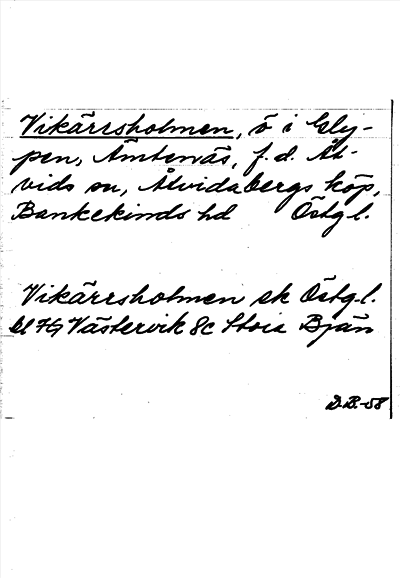 Vikärrsholmen, ö i Gly-
pen, Ämtenäs, f.d. Åt-
vids sn, Åtvidabergs köp,
Bankekinds hd Östgl.
Vikärrsholmen ek Östg.l.
bl 74 Västervik 8c Stora Bjän
D.B.-58